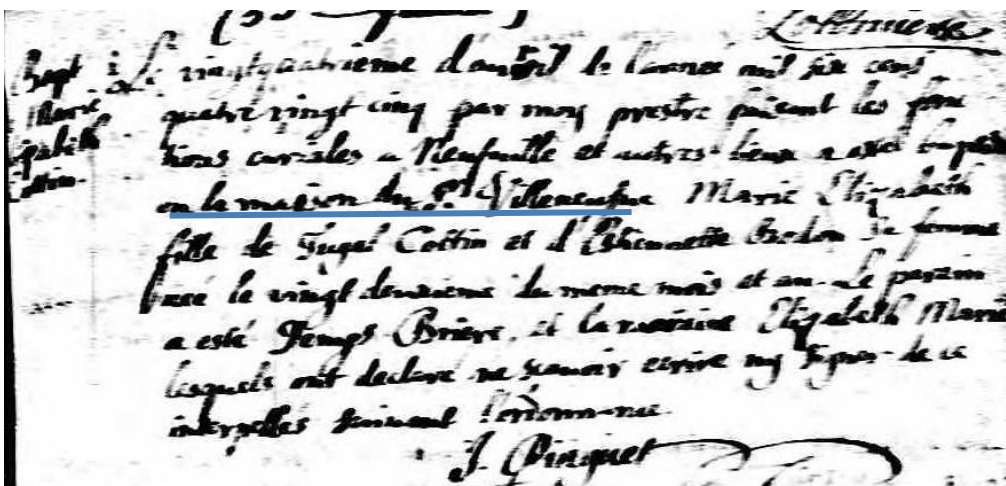 Bapt
Marie
Elizabeth
Cottin.
Le vingtquatrieme d'avril de l'année mil six cens
quatre vingt cinq par moy prestre faisant les fonc
tions curiales a Neufville et autres lieux a esté baptisée
en la maison du Sr. Villeneufve Marie Elizabeth
fille de Cottin et d'Estiennette Bodon sa femme
née le vingt deuxieme du meme mois et an. Le parain
a esté Temps Briere, et la maraine Elizabeth Marie
lesquels ont declaré ne scavoir ecrire ny signer de ce
interpellés suivant l'ordonnance.
J. Pinguet